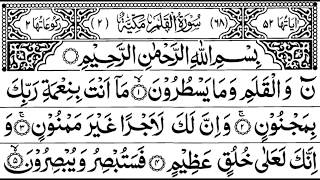 اٰيَاتُهَا ٥٢ (٦٨) سُوْرَةُ الْقَلَمِ مَكِّيَّةٌ (٢) رُكُوْعَاتُهَا ٢
بِسْمِ اللّٰهِ الرَّحْمٰنِ الرَّحِيْمِ
نٓ وَالْقَلَمِ وَمَا يَسْطُرُوْنَ ۙ﴿١﴾ مَآ اَنْتَ بِنِعْمَةِ رَبِّكَ
بِمَجْنُوْنٍ ۚ﴿٢﴾ وَاِنَّ لَكَ لَاَجْرًا غَيْرَ مَمْنُوْنٍ ۚ﴿٣﴾ وَ
اِنَّكَ لَعَلٰى خُلُقٍ عَظِيْمٍ ﴿٤﴾ فَسَتُبْصِرُ وَيُبْصِرُوْنَ ۙ﴿٥﴾